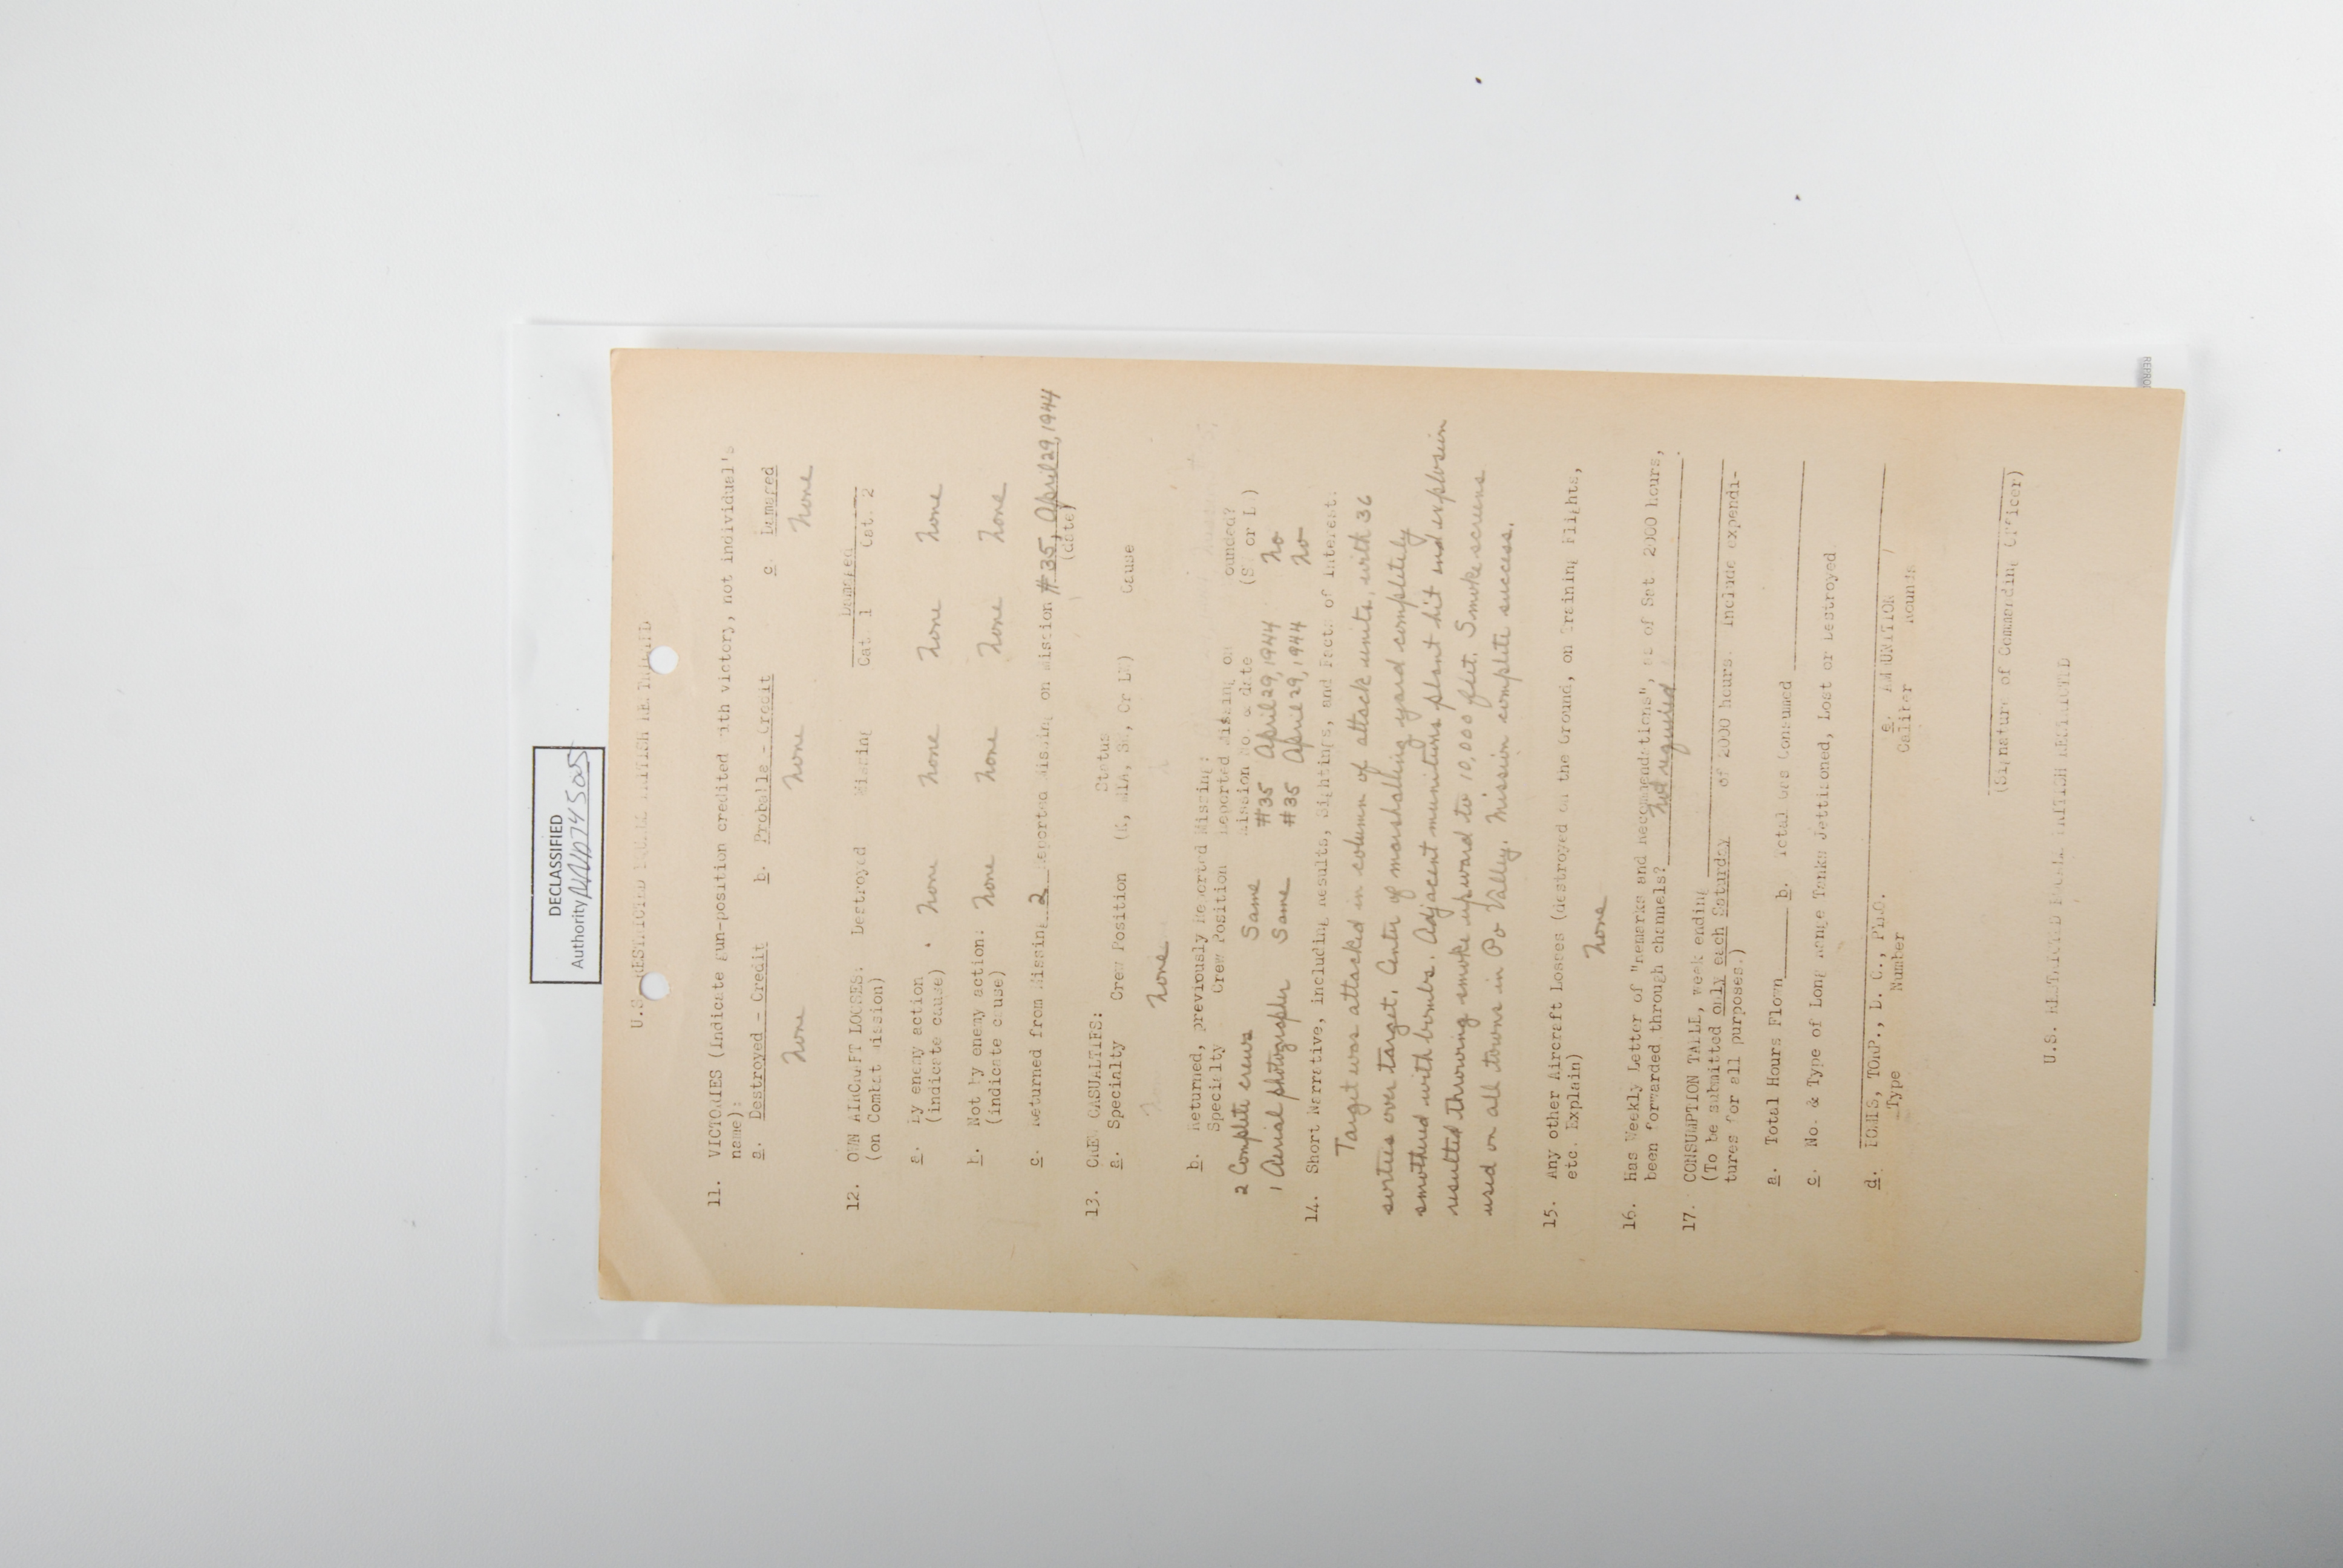 DECLASSIFIED
Authority NND745005
U.S. RESTRICTED
11. VICTORIES (Indicate gun-position credited with victory, not individual's
name):
a. Destroyed - Credit b. Probable - Credit c. Damaged
None None None
12. OWN AIRCRAFT LOSSES: Destroyed Missing Damaged
(on Combat Mission) Cat. 1 Cat. 2
a. By enemy action None None None None
(indicate cause)
b. Not by enemy action: None None None None
(indicate cause)
c. Returned from Missing 2 Reported Missing on Mission #35, April 29, 1944
(date)
13. CREW CASUALTIES: Status
a. Specialty Crew Position (K, MIA, SW, Or LW) Cause
None
b. Returned, previously Reported Missing:
Specialty Crew Position Reported Missing on ounded?
Mission No. & date (S or L)
2 Complete crews Same #35 April 29, 1944 No
1 Aerial photographer Same #35 April 29, 1944 No
14. Short Narrative, including Results, Sightings, and Facts of Interest:
Target was attacked in column of attack units, with 36
sorties over target. Center of marshalling yard completely
smothered with bombs. Adjacent munitions plant hit and explosion
resulted throwing smoke upward to 10,000 feet. Smoke screens
used on all towns in Po Valley. Mission complete success.
15. Any other Aircraft Losses (destroyed on the Ground, on Training Flights,
etc. Explain)
None
16. Has Weekly Letter of "Remarks and Recommendations", as of Sat. 2000 hours,
been forwarded through channels? Not required.
17. CONSUMPTION TABLE, week ending
(To be submitted only each Saturday of 2000 hours. Include expendi-
tures for all purposes.)
a. Total Hours Flown b. Total Gas Consumed
c. No. & Type of Long Range Tanks Jettisoned, Lost or Destroyed.
d. BOMBS, TORP., D. C., PYRO. e. AMMUNITION
Type Number Caliber Rounds
(Signature of Commanding Officer)
U.S. RESTRICTED BRITISH RESTRICTED